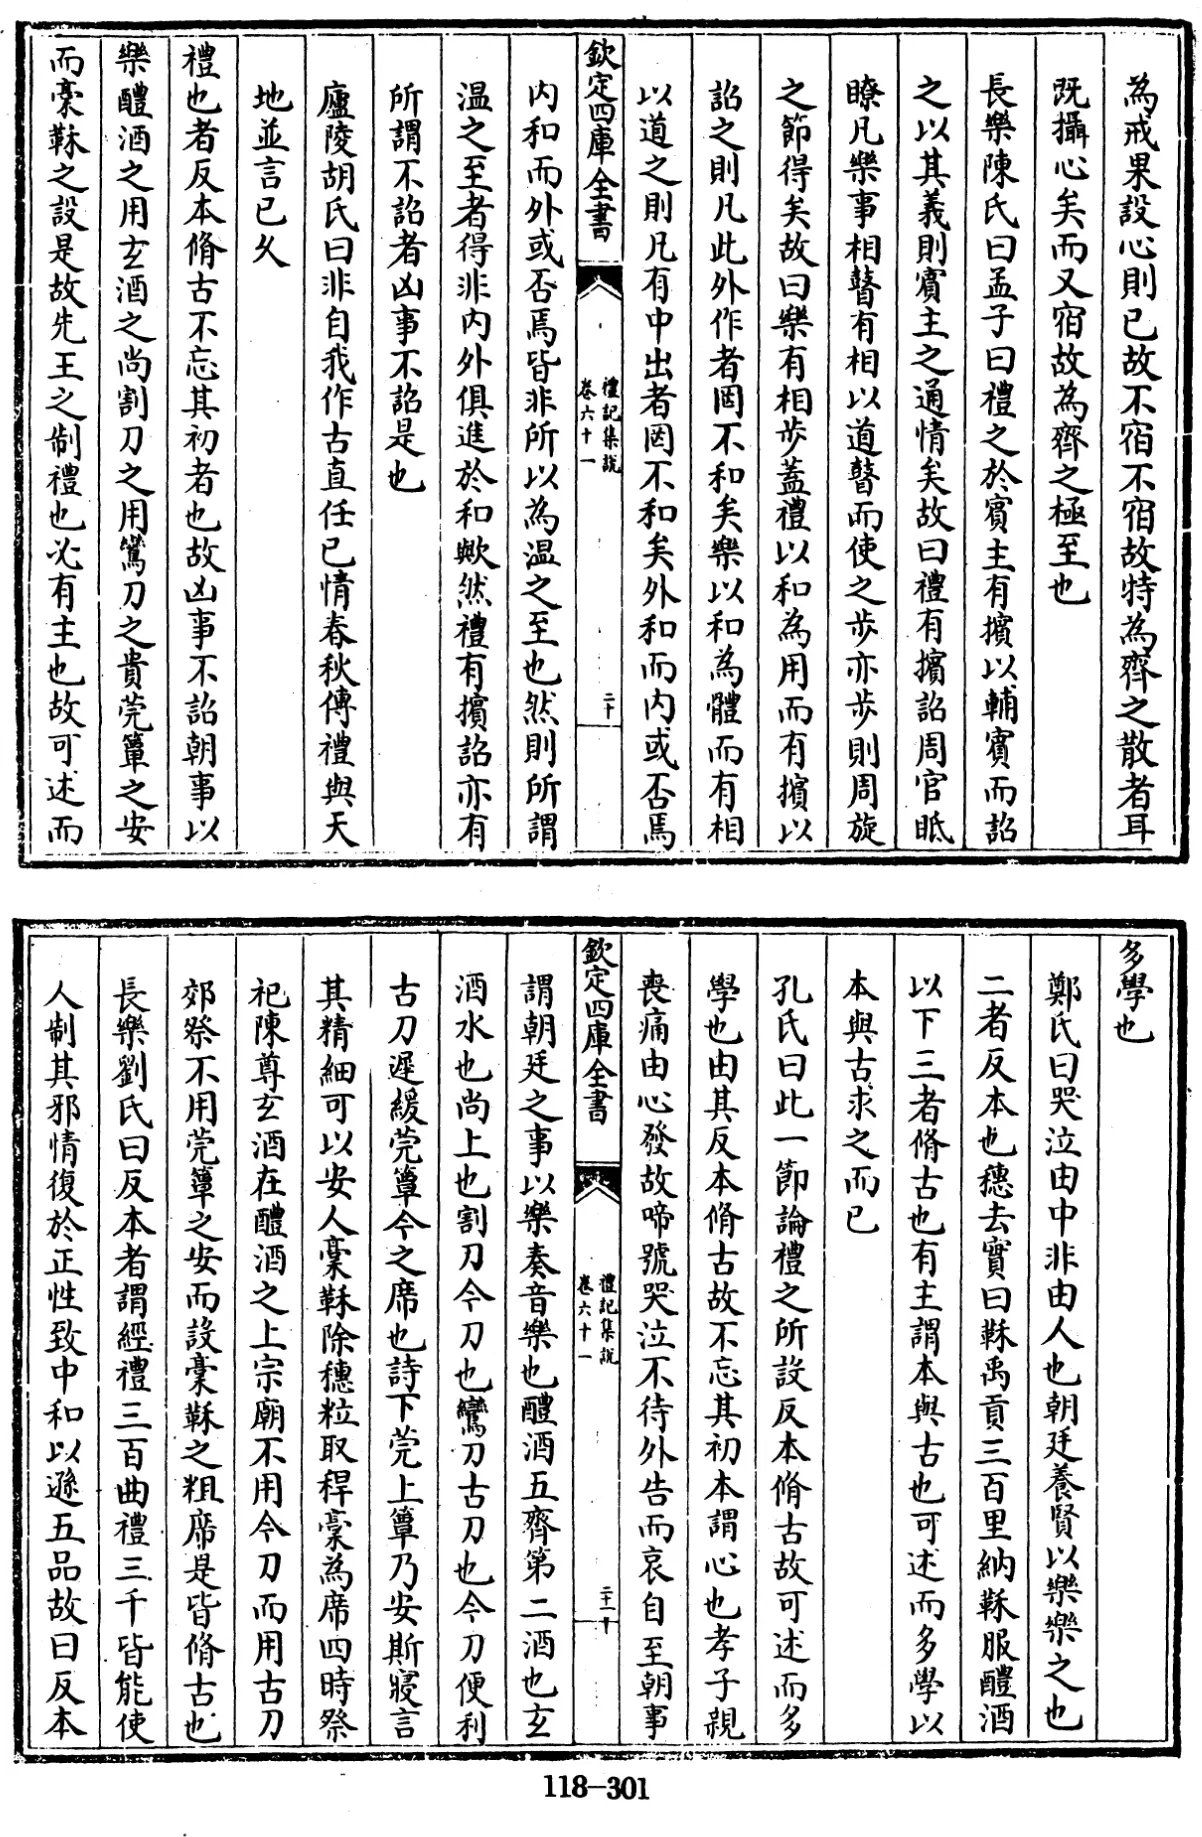 為戒果設心則已故不宿不宿故特為齊之散者耳
既攝心矣而又宿故為齊之極至也
長樂陳氏曰孟子曰禮之於賓主有擯以輔賓而詔
之以其義則賓主之通情矣故曰禮有擯詔周官眡
瞭凡樂事相瞽有相以道瞽而使之步亦步則周旋
之節得矣故曰樂有相步蓋禮以和為用而有擯以
詔之則凡此外作者罔不和矣樂以和為體而有相
以道之則凡有中出者罔不和矣外和而内或否焉
欽定四庫全書
禮記集說
卷六十一
二十
内和而外或否焉皆非所以為温之至也然則所謂
温之至者得非内外俱進於和歟然禮有擯詔亦有
所謂不詔者凶事不詔是也
廬陵胡氏曰非自我作古直任已情春秋傳禮與天
地並言已久
禮也者反本脩古不忘其初者也故凶事不詔朝事以
樂醴酒之用玄酒之尚割刀之用鸞刀之貴莞簟之安
而稾鞂之設是故先王之制禮也必有主也故可述而
多學也
鄭氏曰哭泣由中非由人也朝廷養賢以樂樂之也
二者反本也穗去實曰鞂禹貢三百里納鞂服醴酒
以下三者脩古也有主謂本與古也可述而多學以
本與古求之而已
孔氏曰此一節論禮之所設反本脩古故可述而多
學也由其反本脩古故不忘其初本謂心也孝子親
喪痛由心發故啼號哭泣不待外告而哀自至朝事
欽定四庫全書
禮記集說
卷六十一
二十一
謂朝廷之事以樂奏音樂也醴酒五齊第二酒也玄
酒水也尚上也割刀今刀也鸞刀古刀也今刀便利
古刀遲緩莞簟今之席也詩下莞上簟乃安斯寢言
其精細可以安人稾鞂除穗粒取稈稾為席四時祭
祀陳尊玄酒在醴酒之上宗廟不用今刀而用古刀
郊祭不用莞簟之安而設稾鞂之粗席是皆脩古也
長樂劉氏曰反本者謂經禮三百曲禮三千皆能使
人制其邪情復於正性致中和以遜五品故曰反本
118-301